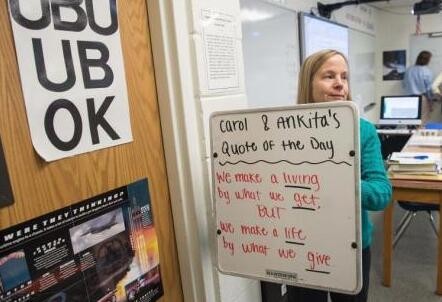 UBU
UB
OK
WERE THEY THINKING?
Carol & Ankita's
Quote of the Day
We make a living
by what we get,
BUT
we make a life
by what we give